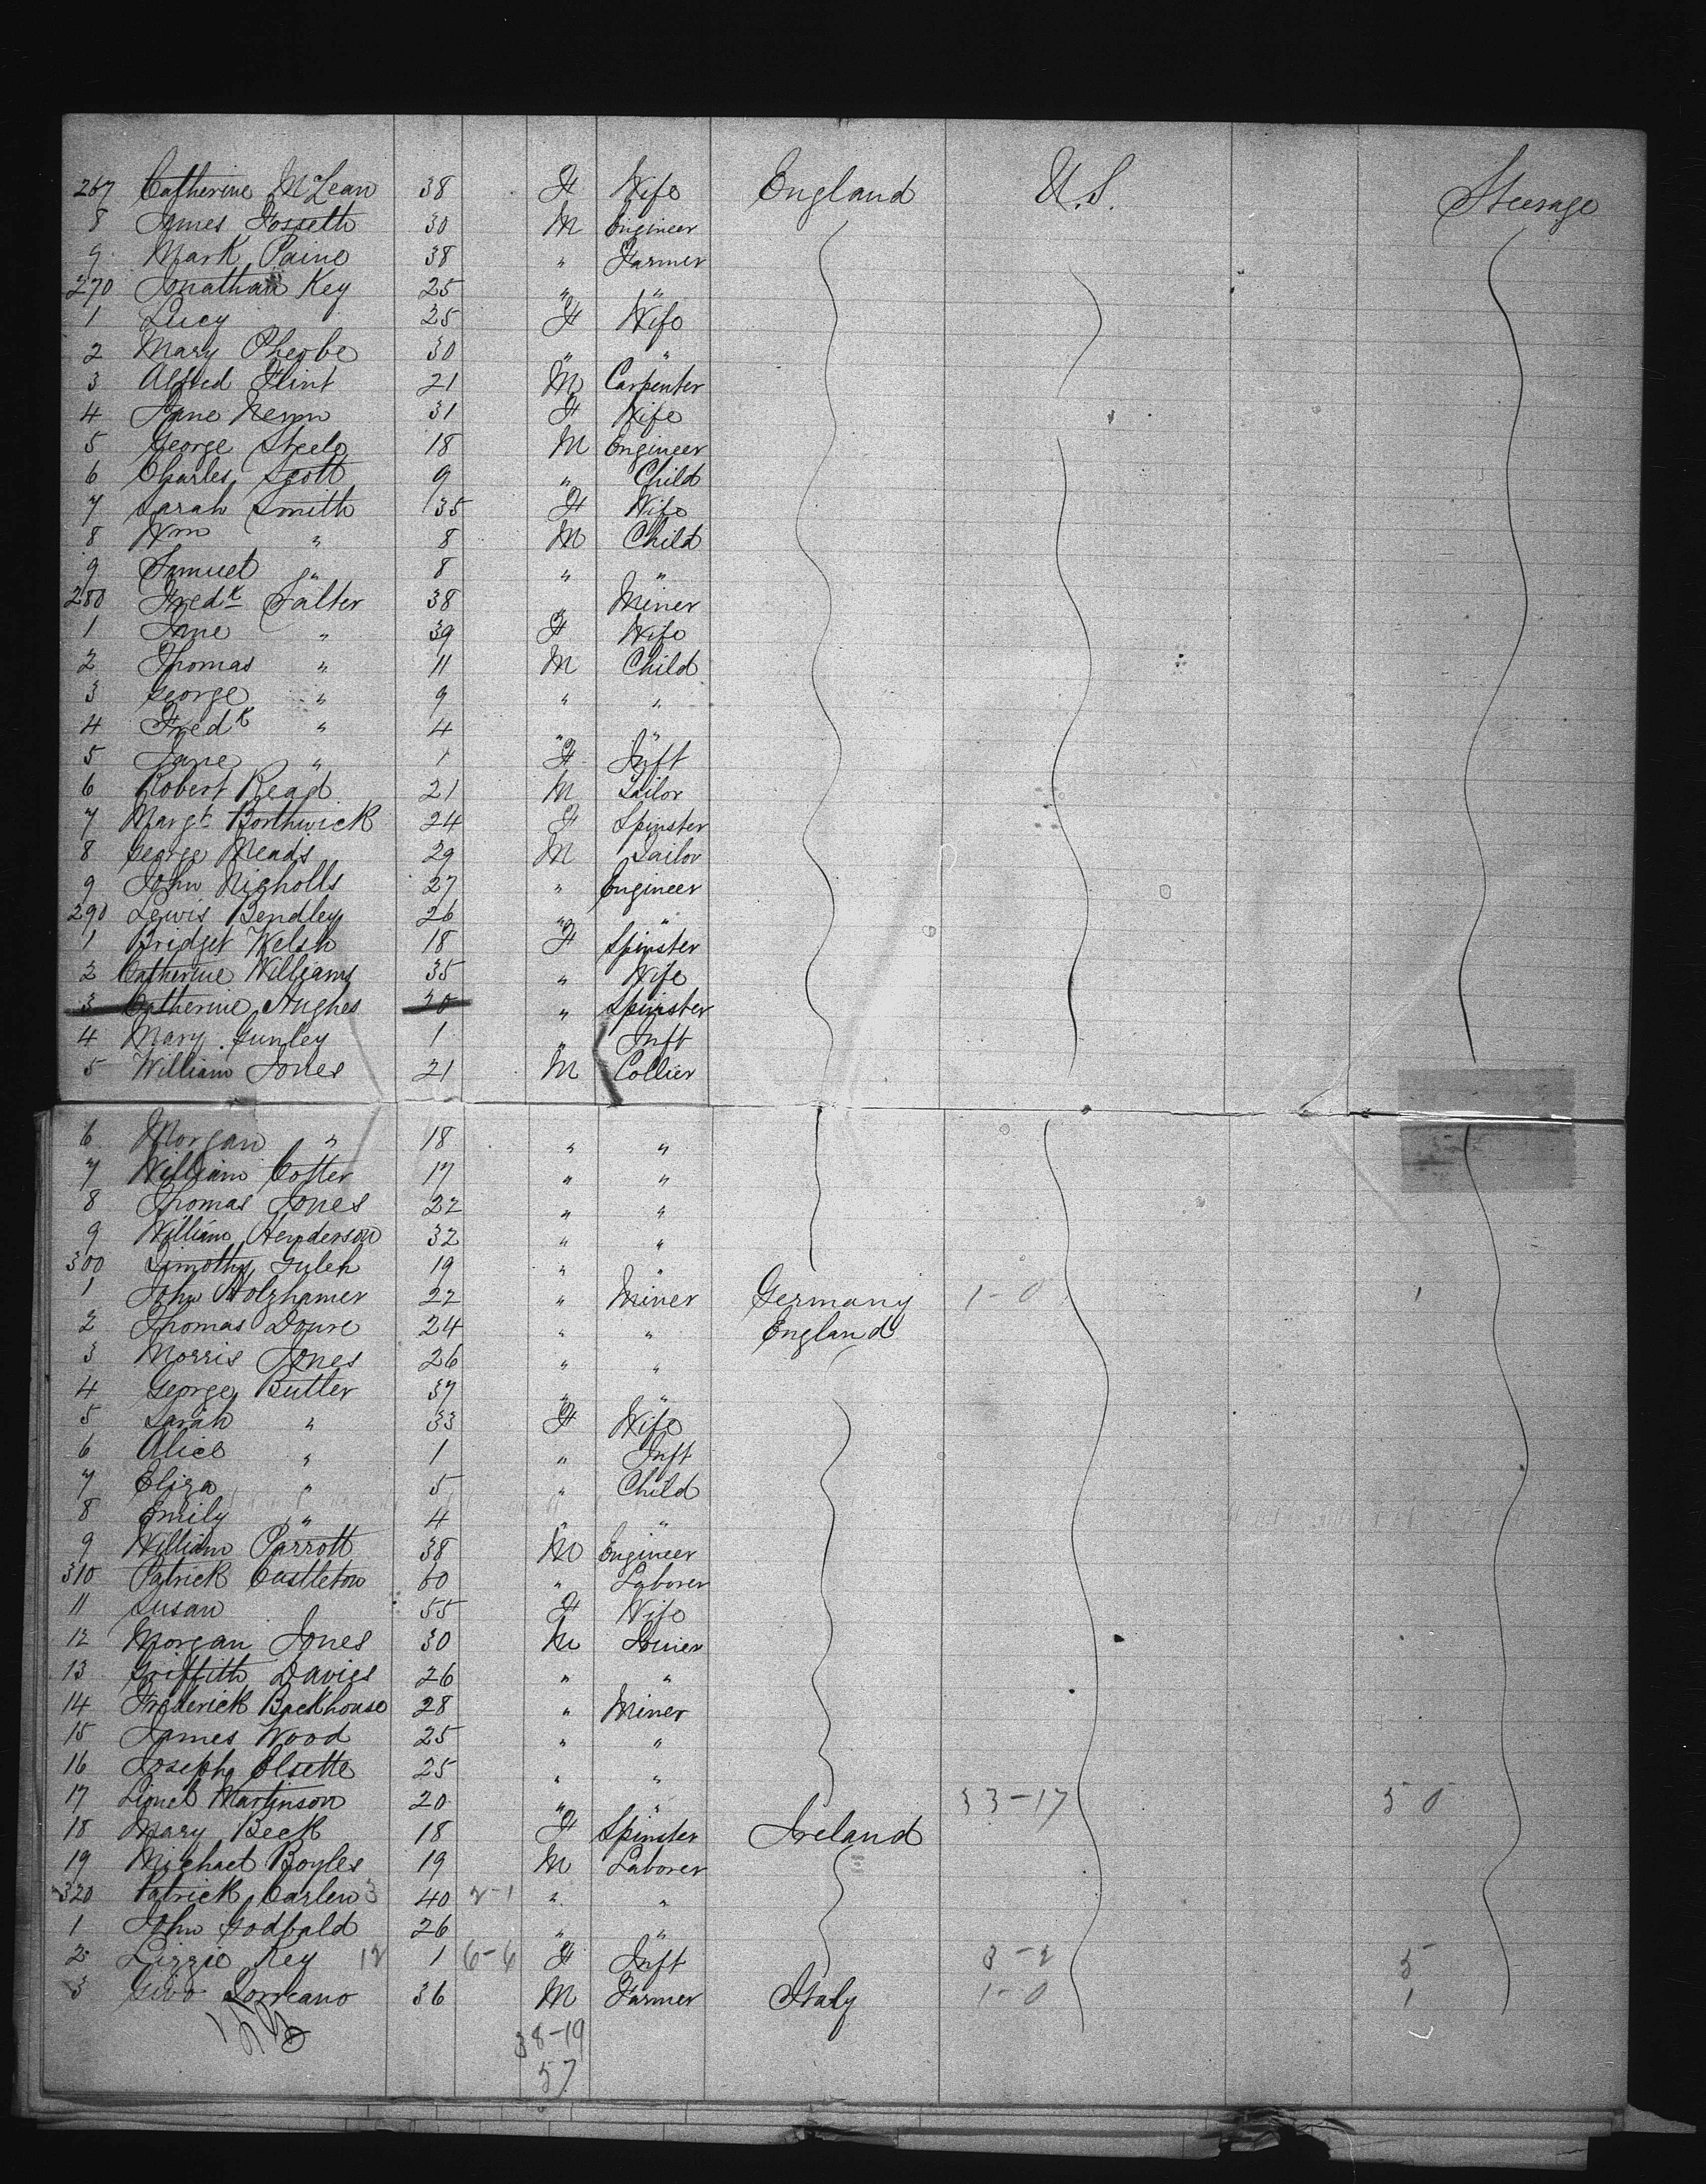 267 Catherine McLean 38 F Wife England U.S. Steerage
8 James Fossett 30 M Engineer
9 Mark Paine 38 " Farmer
270 Jonathan Key 25 " "
1 Lucy 25 F Wife
2 Mary Pheobe 30 " "
3 Alfred Flint 21 M Carpenter
4 Jane 31 F Wife
5 George Steele 18 M Engineer
6 Charles Scott 9 " Child
7 Sarah Smith 35 F Wife
8 Wm " 8 M Child
9 Samuel " 8 " "
280 Fredk Salter 38 " Miner
1 Jane " 39 F Wife
2 Thomas " 11 M Child
3 George " 9 " "
4 Fredk " 4 " "
5 Jane " 1 F Inft
6 Robert Read 21 M Tailor
7 Margt Borthwick 24 F Spinster
8 George Meads 29 M Tailor
9 John Nicholls 27 " Engineer
290 Lewis Bendley 26 " "
1 Bridget Welsh 18 F Spinster
2 Catherine Williams 35 " Wife
3 Catherine Hughes 20 " Spinster
4 Mary Gunley 1 " Inft
5 William Jones 21 M Collier
6 Morgan " 18 " "
7 William Cotter 17 " "
8 Thomas Jones 22 " "
9 William Henderson 32 " "
300 Timothy 19 " "
1 John Holzhamer 22 " Miner Germany 1-0 1
2 Thomas Doure 24 " " England
3 Morris Jones 26 " "
4 George Butler 37 " "
5 Sarah " 33 F Wife
6 Alice " 1 " Inft
7 Eliza " 5 " Child
8 Emily " 4 " "
9 William Parrott 38 M Engineer
310 Patrick Castleton 60 " Laborer
11 Susan 55 F Wife
12 Morgan Jones 30 M Joiner
13 Griffith Davies 26 " "
14 Frederick Backhouse 28 " Miner
15 James Wood 25 " "
16 Joseph Elsette 25 " "
17 Lionel Martinson 20 " " 33-17 50
18 Mary Beck 18 F Spinster Ireland
19 Michael Boyles 19 M Laborer
320 Patrick Carlen 3 40 2-1 " "
1 John Godbald 26 " "
2 Lizzie Key 12 1 6-6 F Inft 3-2 5
3 Givo Lorreano 36 M Farmer Italy 1-0 1
38-19
57